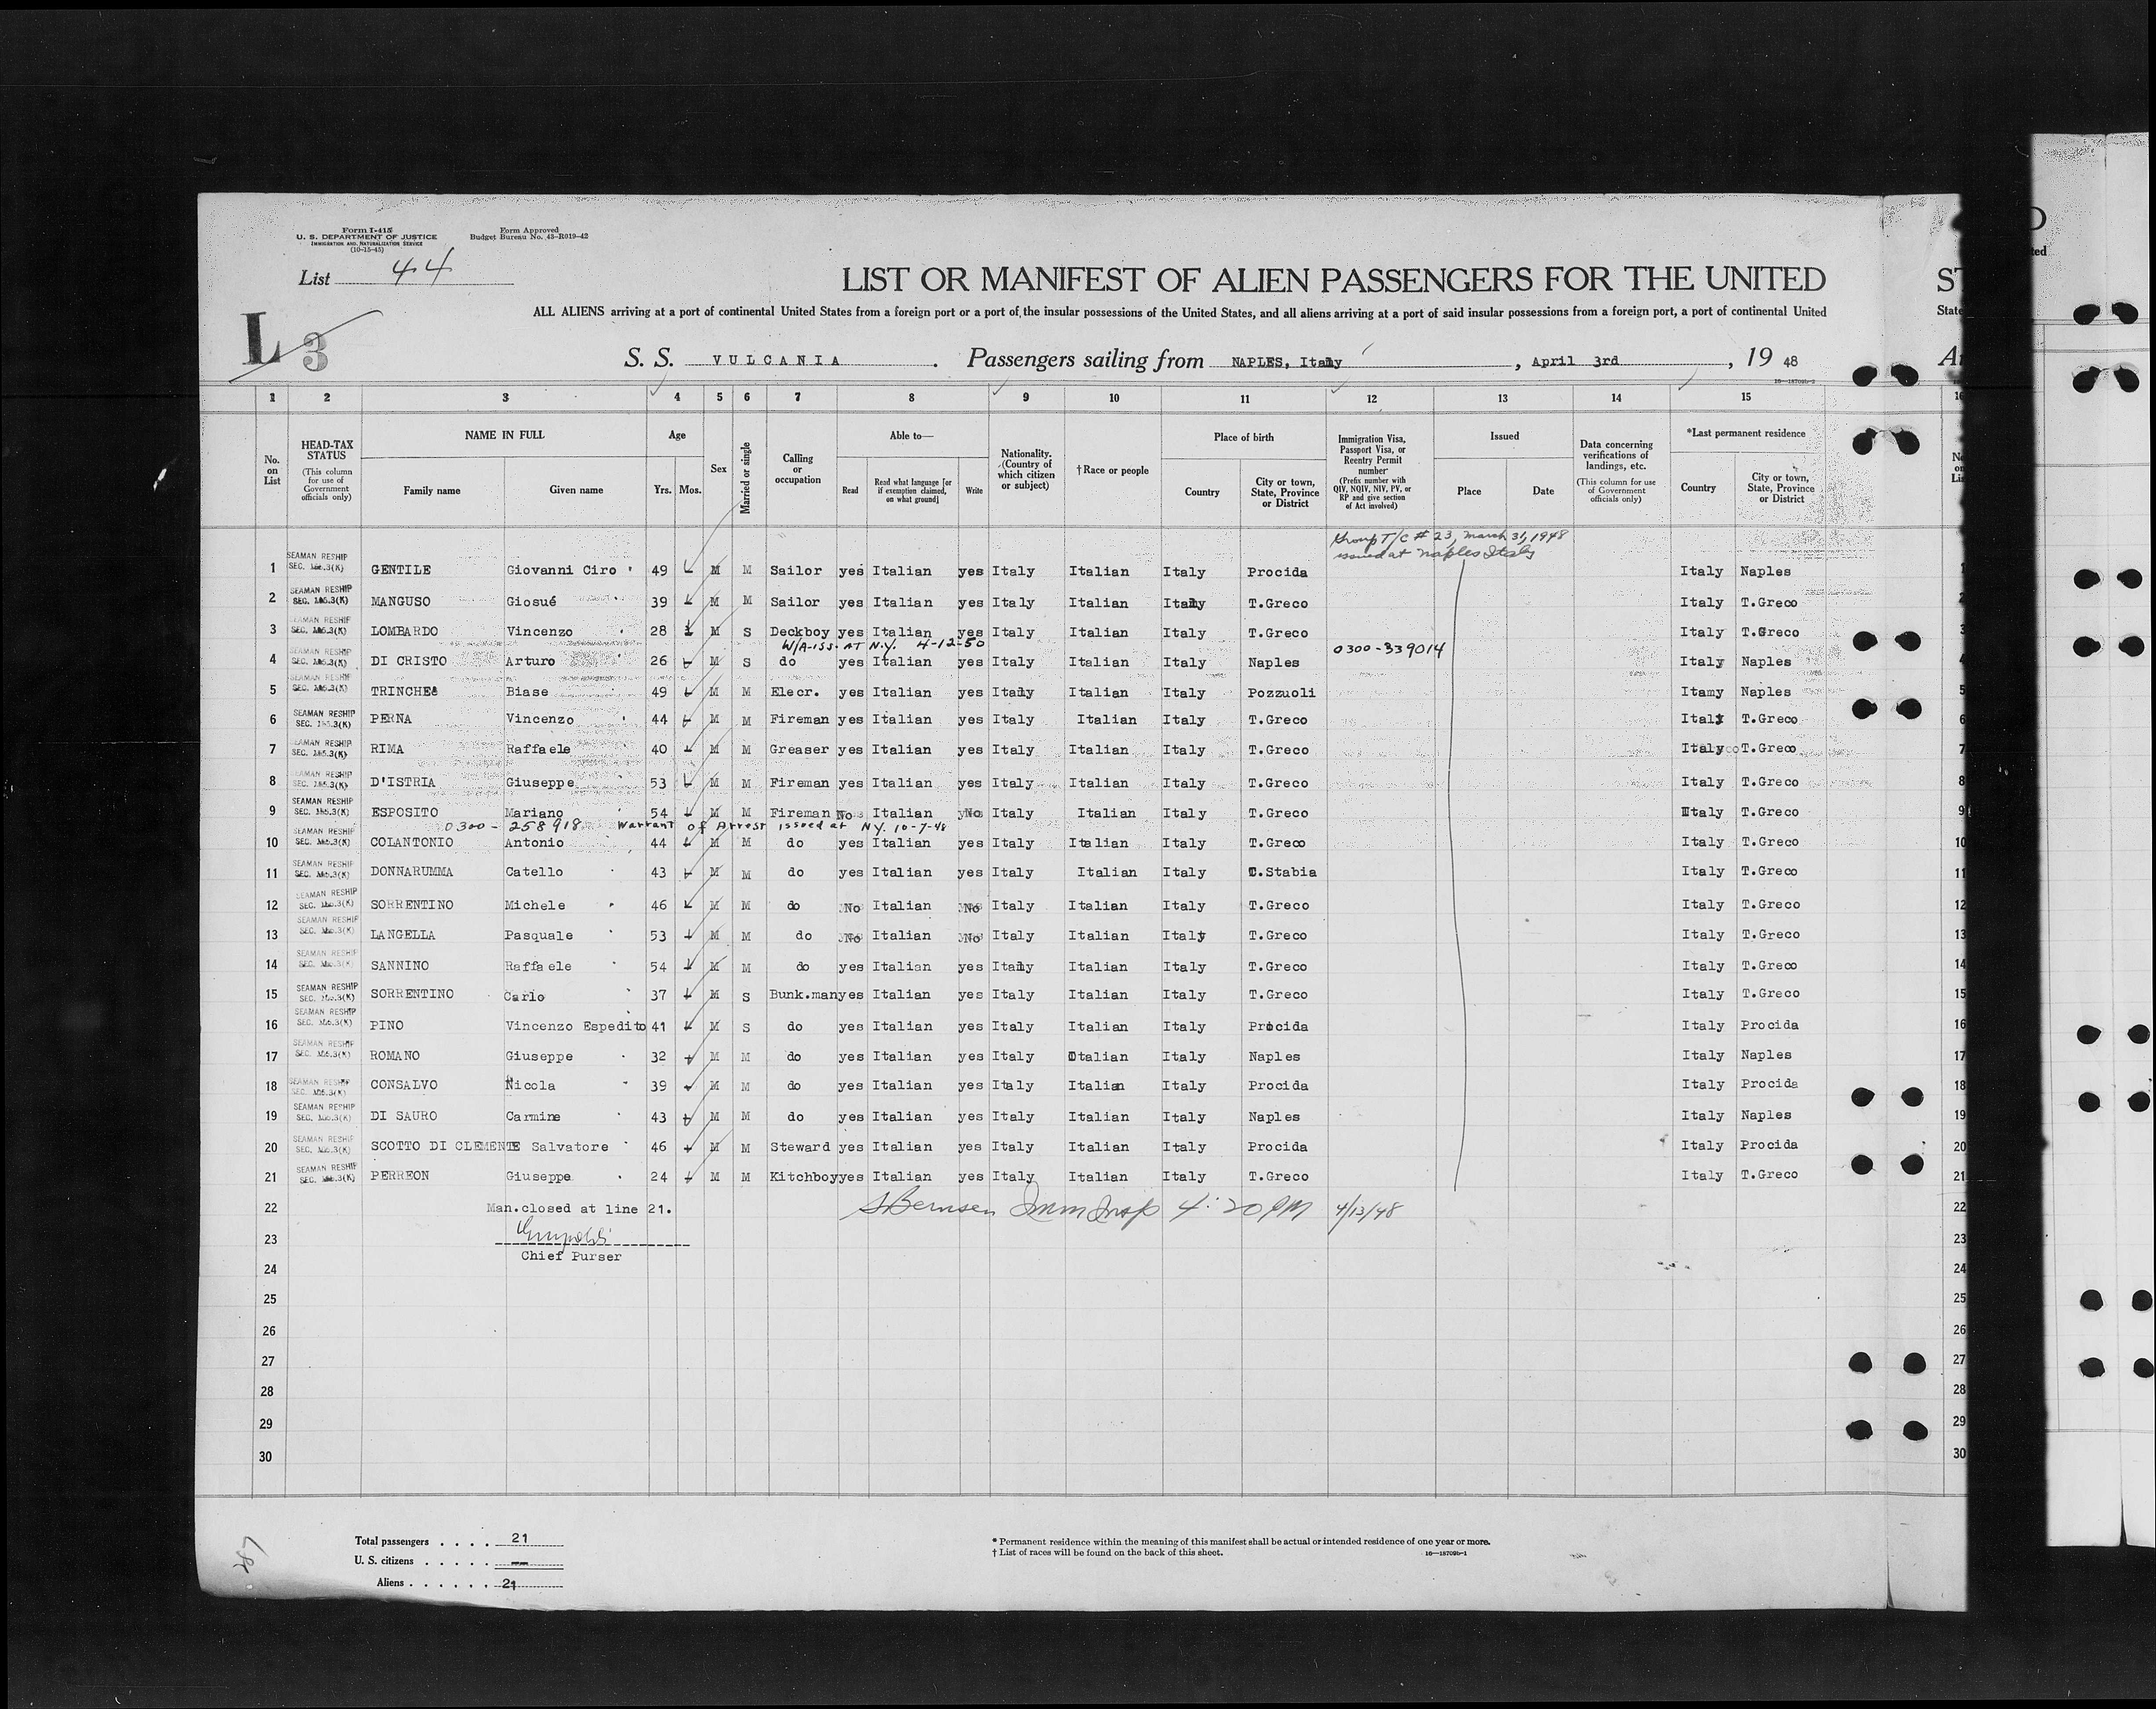 Form I-415
U. S. DEPARTMENT OF JUSTICE
IMMIGRATION AND NATURALIZATION SERVICE
(10-15-45)
Form Approved
Budget Bureau No. 43-R019-42
List 44
L 3
LIST OR MANIFEST OF ALIEN PASSENGERS FOR THE UNITED
ALL ALIENS arriving at a port of continental United States from a foreign port or a port of the insular possessions of the United States, and all aliens arriving at a port of said insular possessions from a foreign port, a port of continental United
S. S. VULCANIA. Passengers sailing from NAPLES, Italy, April 3rd, 19 48
1 2 3 4 5 6 7 8 9 10 11 12 13 14 15
No. on List
HEAD-TAX STATUS (This column for use of Government officials only)
NAME IN FULL Family name Given name
Age Yrs. Mos.
Sex
Married or single
Calling or occupation
Able to— Read Read what language [or if exemption claimed, on what ground] Write
Nationality. (Country of which citizen or subject)
†Race or people
Place of birth Country City or town, State, Province or District
Immigration Visa, Passport Visa, or Reentry Permit number (Prefix number with QIV, NQIV, NIV, PV, or RP and give section of Act involved)
Issued Place Date
Data concerning verifications of landings, etc. (This column for use of Government officials only)
*Last permanent residence Country City or town, State, Province or District
Group T/C # 23, March 31, 1948
issued at Naples Italy
1 SEAMAN RESHIP SEC. 3(K) GENTILE Giovanni Ciro 49 M M Sailor yes Italian yes Italy Italian Italy Procida Italy Naples
2 SEAMAN RESHIP SEC. 3(K) MANGUSO Giosué 39 M M Sailor yes Italian yes Italy Italian Italy T.Greco Italy T.Greco
3 SEAMAN RESHIP SEC. 3(K) LOMBARDO Vincenzo 28 M S Deckboy yes Italian yes Italy Italian Italy T.Greco Italy T.Greco
W/A-ISS. AT N.Y. 4-12-50 0300-339014
4 SEAMAN RESHIP SEC. 3(K) DI CRISTO Arturo 26 M S do yes Italian yes Italy Italian Italy Naples Italy Naples
5 SEAMAN RESHIP SEC. 3(K) TRINCHEA Biase 49 M M Elecr. yes Italian yes Italy Italian Italy Pozzuoli Itamy Naples
6 SEAMAN RESHIP SEC. 3(K) PERNA Vincenzo 44 M M Fireman yes Italian yes Italy Italian Italy T.Greco Italy T.Greco
7 SEAMAN RESHIP SEC. 3(K) RIMA Raffaele 40 M M Greaser yes Italian yes Italy Italian Italy T.Greco Italy T.Greco
8 SEAMAN RESHIP SEC. 3(K) D'ISTRIA Giuseppe 53 M M Fireman yes Italian yes Italy Italian Italy T.Greco Italy T.Greco
9 SEAMAN RESHIP SEC. 3(K) ESPOSITO Mariano 54 M M Fireman No Italian No Italy Italian Italy T.Greco Italy T.Greco
0300-258918 Warrant of Arrest issued at NY. 10-7-48
10 SEAMAN RESHIP SEC. 3(K) COLANTONIO Antonio 44 M M do yes Italian yes Italy Italian Italy T.Greco Italy T.Greco
11 SEAMAN RESHIP SEC. 3(K) DONNARUMMA Catello 43 M M do yes Italian yes Italy Italian Italy C.Stabia Italy T.Greco
12 SEAMAN RESHIP SEC. 3(K) SORRENTINO Michele 46 M M do No Italian No Italy Italian Italy T.Greco Italy T.Greco
13 SEAMAN RESHIP SEC. 3(K) LANGELLA Pasquale 53 M M do No Italian No Italy Italian Italy T.Greco Italy T.Greco
14 SEAMAN RESHIP SEC. 3(K) SANNINO Raffaele 54 M M do yes Italian yes Italy Italian Italy T.Greco Italy T.Greco
15 SEAMAN RESHIP SEC. 3(K) SORRENTINO Carlo 37 M S Bunk.man yes Italian yes Italy Italian Italy T.Greco Italy T.Greco
16 SEAMAN RESHIP SEC. 3(K) PINO Vincenzo Espedito 41 M S do yes Italian yes Italy Italian Italy Procida Italy Procida
17 SEAMAN RESHIP SEC. 3(K) ROMANO Giuseppe 32 M M do yes Italian yes Italy Italian Italy Naples Italy Naples
18 SEAMAN RESHIP SEC. 3(K) CONSALVO Nicola 39 M M do yes Italian yes Italy Italian Italy Procida Italy Procida
19 SEAMAN RESHIP SEC. 3(K) DI SAURO Carmine 43 M M do yes Italian yes Italy Italian Italy Naples Italy Naples
20 SEAMAN RESHIP SEC. 3(K) SCOTTO DI CLEMENTE Salvatore 46 M M Steward yes Italian yes Italy Italian Italy Procida Italy Procida
21 SEAMAN RESHIP SEC. 3(K) PERREON Giuseppe 24 M M Kitchboy yes Italian yes Italy Italian Italy T.Greco Italy T.Greco
22 Man.closed at line 21. S Bernsen Imm Insp 4:20 PM 4/13/48
23
Chief Purser
24
25
26
27
28
29
30
Total passengers . . . . 21
U. S. citizens . . . . . —
Aliens . . . . . . 21
* Permanent residence within the meaning of this manifest shall be actual or intended residence of one year or more.
† List of races will be found on the back of this sheet.
16—18709b-1